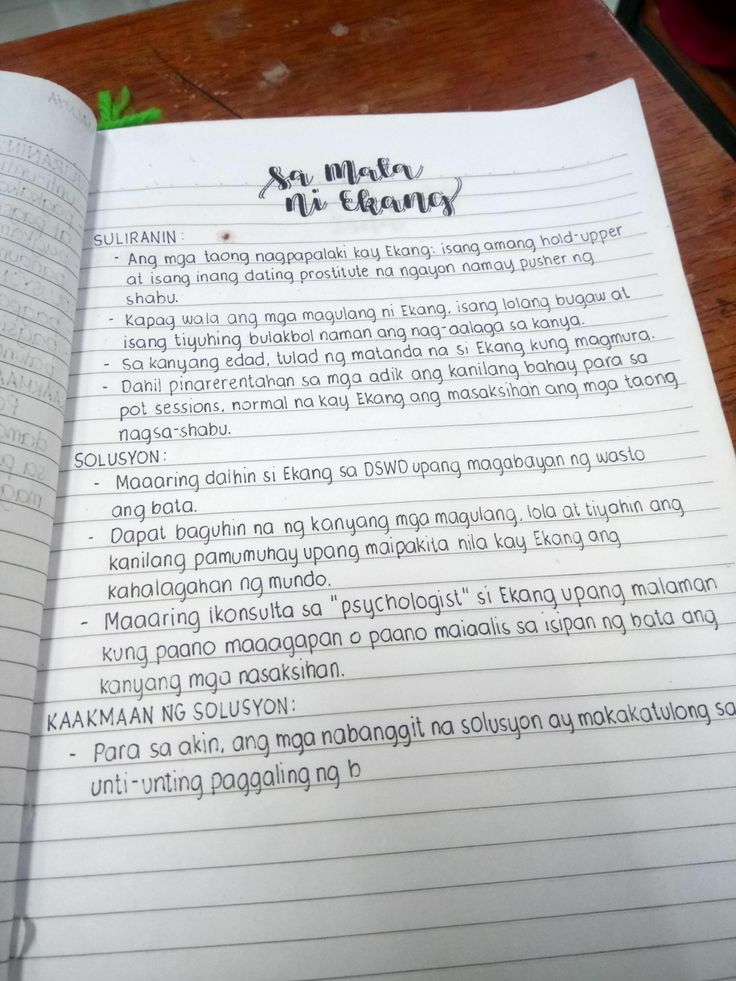 Sa Mata
ni Ekang
SULIRANIN:
- Ang mga taong nagpapalaki kay Ekang: isang amang hold-upper
at isang inang dating prostitute na ngayon namay pusher ng
shabu.
- Kapag wala ang mga magulang ni Ekang, isang lolang bugaw at
isang tiyuhing bulakbol naman ang nag-aalaga sa kanya.
- Sa kanyang edad, tulad ng matanda na si Ekang kung magmura.
- Dahil pinarerentahan sa mga adik ang kanilang bahay para sa
pot sessions, normal na kay Ekang ang masaksihan ang mga taong
nagsa-shabu.
SOLUSYON:
- Maaaring dalhin si Ekang sa DSWD upang magabayan ng wasto
ang bata.
- Dapat baguhin na ng kanyang mga magulang, lola at tiyahin ang
kanilang pamumuhay upang maipakita nila kay Ekang ang
kahalagahan ng mundo.
- Maaaring ikonsulta sa "psychologist" si Ekang upang malaman
kung paano maaagapan o paano maiaalis sa isipan ng bata ang
kanyang mga nasaksihan.
KAAKMAAN NG SOLUSYON:
- Para sa akin, ang mga nabanggit na solusyon ay makakatulong sa
unti-unting paggaling ng b